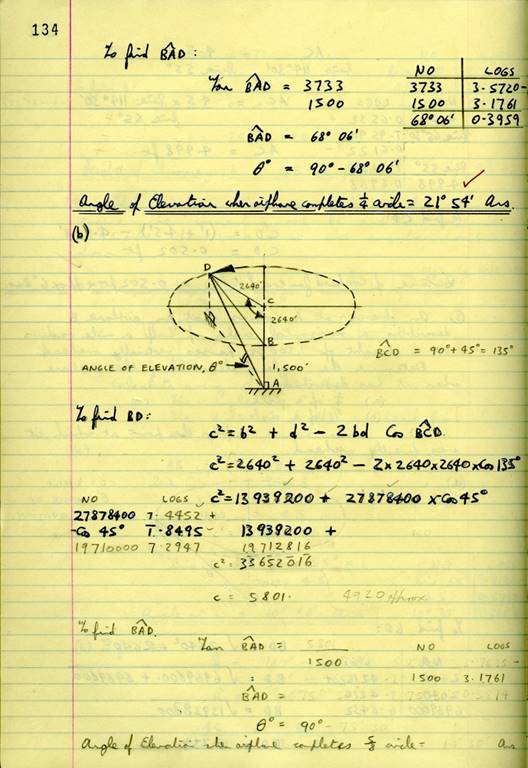 134
To find BÂD :
Tan BÂD = 3733
1500
NO LOGS
3733 3.5720 -
1500 3.1761
68° 06' 0.3959
BÂD = 68° 06'
θ° = 90° - 68° 06'
Angle of Elevation when airplane completes ¼ circle = 21° 54' Ans.
(b)
D
2640'
C
2640'
B
BĈD = 90° + 45° = 135°
ANGLE OF ELEVATION, θ°
1,500'
A
To find BD :
c² = b² + d² - 2bd Cos BĈD.
c² = 2640² + 2640² - 2 x 2640 x 2640 x Cos 135°
c² = 13939200 + 27878400 x Cos 45°
NO LOGS
27878400 7.4452 +
Cos 45° 1̄.8495
19710000 7.2947
13939200 +
19712816
c² = 33652016
c = 5801. 4920 approx
To find BÂD.
Tan BÂD = 5801
1500
NO LOGS
1500 3.1761
BÂD =
θ° = 90° -
Angle of Elevation when airplane completes ⅝ circle = Ans